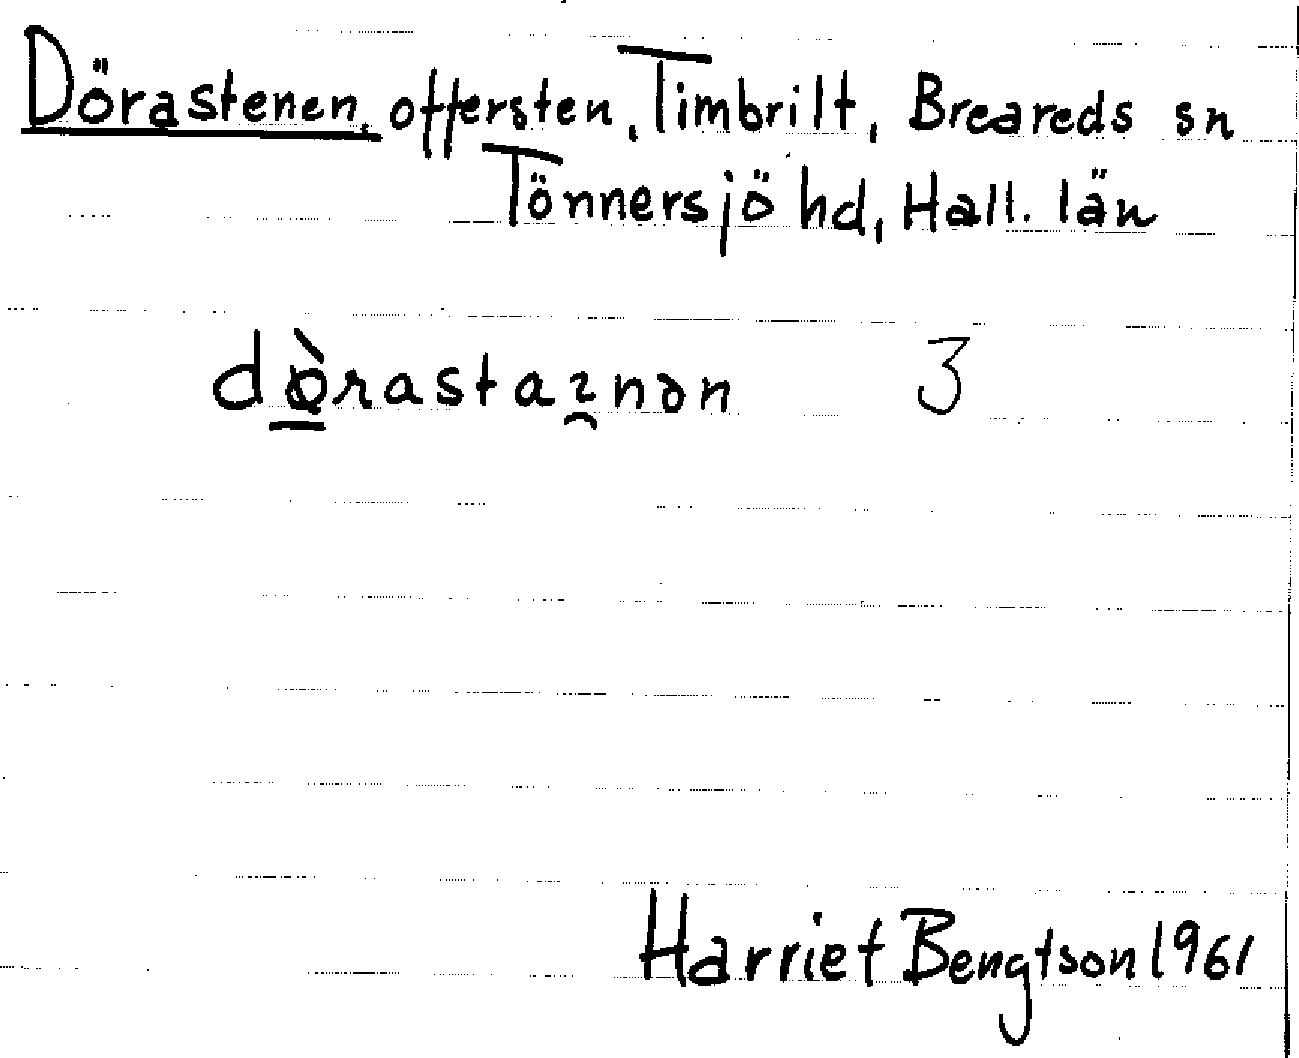 Dörastenen, offersten, Timbrilt, Breareds sn
Tönnersjö hd, Hall. län
dø̀rastaɿ̯nən 3
Harriet Bengtson 1961